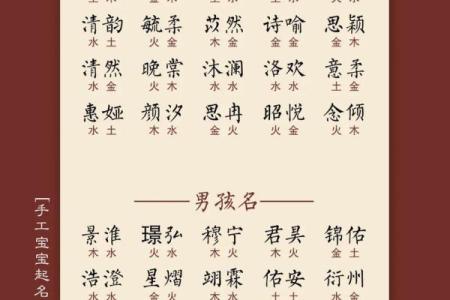 清韵 毓柔 苡然 诗喻 思颖
水土 火金 木金 金火 金木
清然 晚棠 沐澜 洛欢 意柔
水金 火木 水水 水水 土金
惠娅 颜汐 思冉 昭悦 念倾
水土 木水 金火 火金 火木
男孩名
景淮 璟弘 穆宁 君昊 锦佑
木水 火水 水火 木火 金土
浩澄 星熠 翊霖 佑安 衍州
水水 金火 木水 土土 水金
[手工宝宝起名